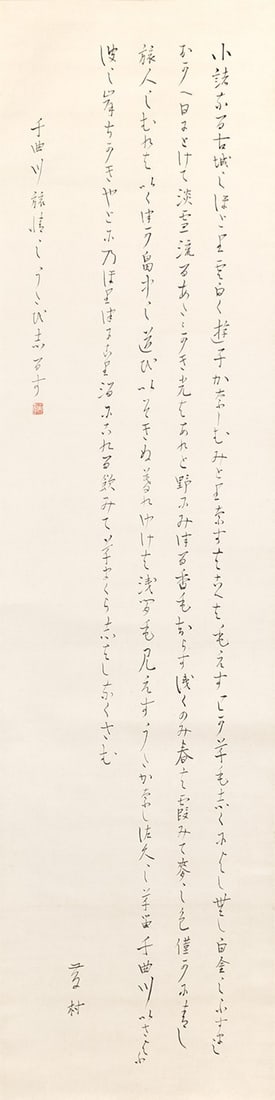 小諸なる古城のほとり雲白く遊子かなしむみとりなすはこへはもえすわか草もしくによし無し白金のふすまの
おかへ日にとけて淡雪流るあたゝかき光はあれと野にみつる香も知らす浅くのみ春は霞みて麥の色僅かに青し
旅人のむれはいくつか畠中の道をいそきぬ暮れゆけは浅間も見えすうたかなし佐久の草笛千曲川いさよふ
波の岸ちかきやとにのほりつにこり酒にこれる飲みて草まくらしはしなくさむ
千曲川旅情のうたをしるす
藤村